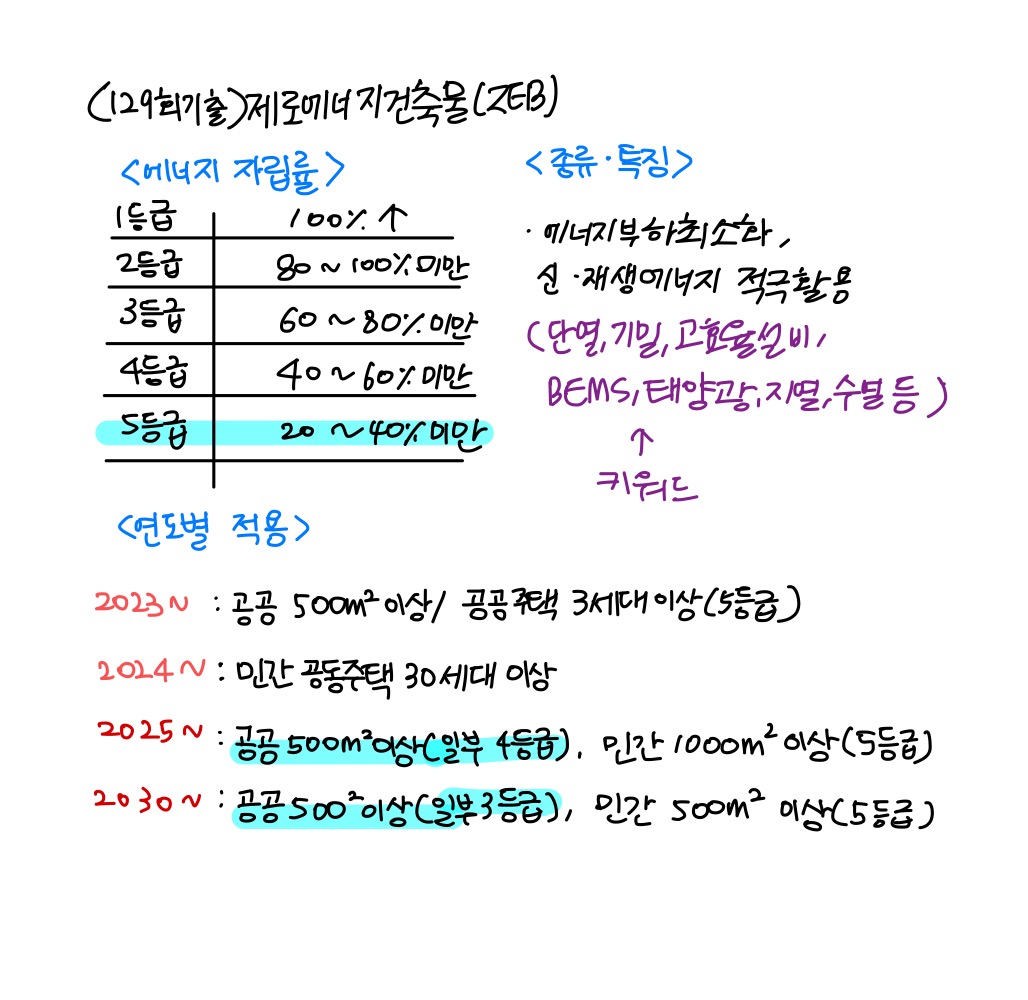 (129회기출)제로에너지건축물(ZEB)
<에너지 자립률>
1등급 100% ↑
2등급 80~100%미만
3등급 60~80%미만
4등급 40~60%미만
5등급 20~40%미만
<종류·특징>
· 에너지부하최소화,
신·재생에너지 적극활용
(단열,기밀,고효율설비,
BEMS,태양광,지열,수열등)
↑
키워드
<연도별 적용>
2023~ : 공공 500m² 이상/ 공공주택 3세대이상(5등급)
2024~ : 민간 공동주택 30세대 이상
2025~ : 공공500m²이상(일부 4등급), 민간1000m²이상(5등급)
2030~ : 공공500²이상(일부3등급), 민간 500m² 이상(5등급)